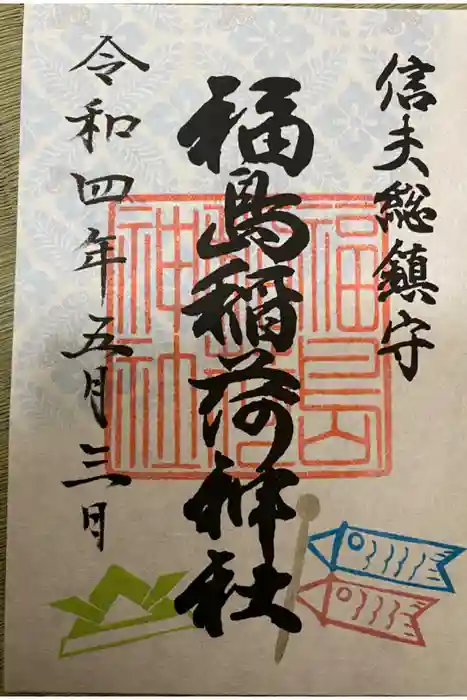 信夫総鎮守
福島稲荷神社
令和四年五月三日
福島稲荷神社